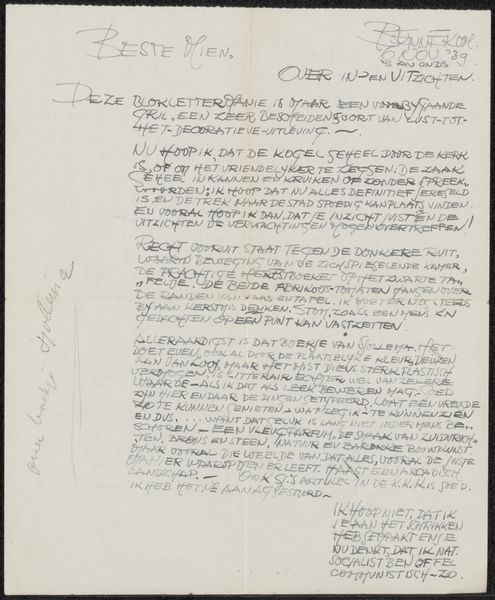 BESTE MIEN,
BENNEKOM.
NOV. '39
'S AVONDS
OVER IN- EN UITZICHTEN.
DEZE BLOKLETTERMANIE IS MAAR EEN VOORBYGAANDE
GRIL, EEN ZEER BESCHEIDEN SOORT VAN LUST-TOT-
HET-DECORATIEVE-UITLEVING. —
NU HOOP IK, DAT DE KOGEL GEHEEL DOOR DE KERK
IS, OF OM HET VRIENDELYKER TE ZEGGEN: DE ZAAK
GEHEEL IN KANNEN EN KRUIKEN OF ZONDER SPREEK-
WOORDEN: IK HOOP DAT NU ALLES DEFINITIEF GEREGELD
IS EN DE TREK NAAR DE STAD SPOEDIG KAN PLAATS VINDEN.
EN VOORAL HOOP IK DAN, DAT JE INZICHT JUIST EN DE
UITZICHTEN DE VERWACHTINGEN MOGEN OVERTREFFEN!
RECHT VOORUIT STAAT TEGEN DE DONKERE RUIT,
WAARIN BEWEGING VAN DE ZICH SPIEGELENDE KAMER,
DE PRACHTIGE HERFSTBOEKET OP HET ZWARTE TA-
FELTJE. DE BEIDE ABRIKOOS-TOMATEN HANGEN OVER
DE RANDEN VAN VAAS EN TAFEL. IK MOET ER NOG STEEDS
BY AAN KERSTMIS DENKEN. STOM, ZOALS EEN MENS ZN
GEDACHTEN OP EEN PUNT KAN VASTZETTEN.
ALLERAARDIGST IS DAT BOEKJE VAN HOLLEMA. HET
DOET EVEN, OOK AL DOOR DE PLAATSELYKE KLEUR, DENKEN
AAN VAN LOOY, MAAR HET MIST DIENS STERK PLASTISCH
VERMOGEN. IS LITTERAIR ECHTER WEL VAN ZEKERE
WAARDE - ALS IK DAT ALS LEEK BEWEREN MAG. GOED
ZYN HIER EN DAAR DE DINGEN GETYPEERD. WAT EEN VREUGDE
ZO TE KUNNEN GENIETEN - WAT ZEG IK - TE KUNNEN ZIEN
EN DUS..... WANT DAT GELUK IS LANG NIET IEDER MENS BE-
SCHOREN - EEN VLEUG PARFUM, DE SMAAK VAN ZUIDVRUCH-
TEN, BRONS EN STEEN, NATUUR EN BAROKKE BOUWKUNST
MAAR VOORAL DIE WEELDE VAN DAT ALLES, VOORAL DE JUISTE
MANIER WAAROP MEN ER LEEFT. HAAST EEN ARCADISCH
LANDSCHAP. — OOK S'S ARTIKEL IN DE K.K.K. IS GOED.
IK HEB HET No. AAN AG. GESTUURD —
IK HOOP NIET, DAT IK
JE AAN HET SCHRIKKEN
HEB GEMAAKT EN JE
NU DENKT, DAT IK NAT.
SOCIALIST BEN OF FEL
COMMUNISTISCH - ZO.
over boekje Hollema